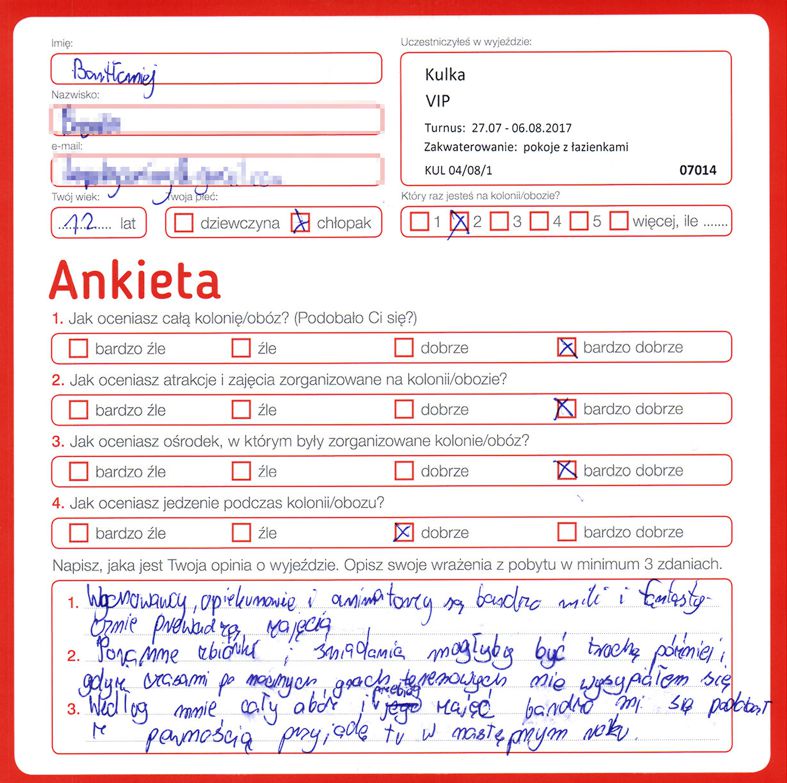 Imię:
Uczestniczyłeś w wyjeździe:
Bartłomiej
Kulka
VIP
Turnus: 27.07 - 06.08.2017
Zakwaterowanie: pokoje z łazienkami
KUL 04/08/1 07014
Nazwisko:
e-mail:
Twój wiek:
Twoja płeć:
Który raz jesteś na kolonii/obozie?
12 lat
dziewczyna chłopak
1 2 3 4 5 więcej, ile .......
Ankieta
1. Jak oceniasz całą kolonię/obóz? (Podobało Ci się?)
bardzo źle źle dobrze bardzo dobrze
2. Jak oceniasz atrakcje i zajęcia zorganizowane na kolonii/obozie?
bardzo źle źle dobrze bardzo dobrze
3. Jak oceniasz ośrodek, w którym były zorganizowane kolonie/obóz?
bardzo źle źle dobrze bardzo dobrze
4. Jak oceniasz jedzenie podczas kolonii/obozu?
bardzo źle źle dobrze bardzo dobrze
Napisz, jaka jest Twoja opinia o wyjeździe. Opisz swoje wrażenia z pobytu w minimum 3 zdaniach.
1. Wychowawcy, opiekunowie i animatorzy są bardzo mili i fantasty-
cznie prowadzą zajęcia
2. Poranne zbiórki i śniadania mogłyby być trochę później,
gdyż czasami po nocnych grach terenowych nie wysypiałem się
3. Według mnie cały obóz i przebieg zajęć bardzo mi się podobał
z pewnością przyjadę tu w następnym roku.